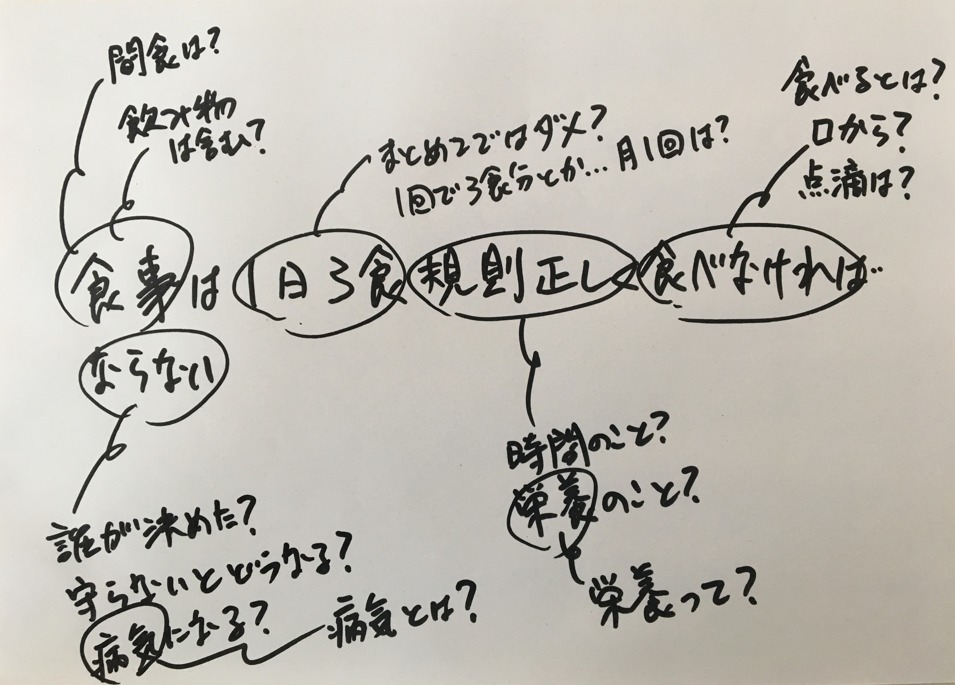 間食は?
飲み物
は含む?
まとめてではダメ?
1回で3食分とか…月1回は?
食べるとは?
口から?
点滴は?
食事は1日3食規則正しく食べなければ
ならない
時間のこと?
栄養のこと?
栄養って?
誰が決めた?
守らないとどうなる?
病気になる?
病気とは?